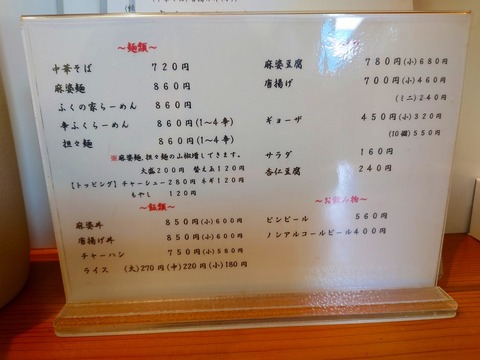 ～麺類～
中華そば 720円
麻婆麺 860円
ふくの家らーめん 860円
辛ふくらーめん 860円(1～4辛)
担々麺 860円(1～4辛)
※麻婆麺、担々麺の山椒増しできます。
大盛200円 替え玉120円
【トッピング】チャーシュー280円 ネギ120円
もやし 120円
～飯類～
麻婆丼 850円(小)600円
唐揚げ丼 850円(小)600円
チャーハン 750円(小)580円
ライス (大)270円(中)220円(小)180円
麻婆豆腐 780円(小)680円
唐揚げ 700円(小)460円
(ミニ)240円
ギョーザ 450円(小)320円
(10個)550円
サラダ 160円
杏仁豆腐 240円
～お飲み物～
ビンビール 560円
ノンアルコールビール400円